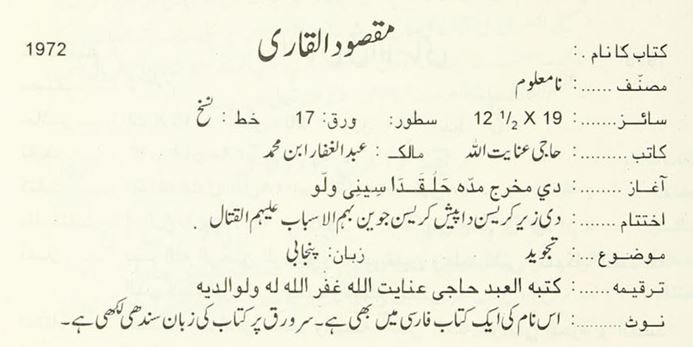 کتاب کا نام .: مقصود القاری 1972
مصنّف ......: نامعلوم
سائــز........: 19 X 12 1/2 سطور: ورق: 17 خط : نسخ
کاتب ........: حاجی عنایت اللہ مالکـ : عبدالغفار ابن محمد
آغـاز ........: دي مخرج مدّه حَلْـقَـدَا سِينِی ولّو
اختتام .......: دی زیر کریسن دا پیش کریسن جوین بہم الاسباب علیہم القتال .
موضـوع ...: تجوید زبان: پنجابی
ترقیمه......: کتبه العبد حاجی عنایت الله غفر الله له ولوالدیه
نـوٹ.........: اس نام کی ایک کتاب فارسی میں بھی ہے۔ سرورق پر کتاب کی زبان سندھی لکھی ہے۔